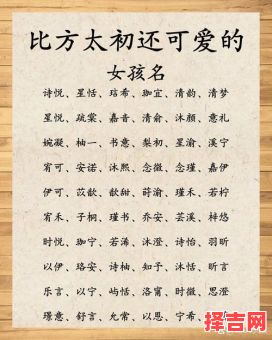 比方太初还可爱的
女孩名
诗悦、星恬、琂希、珈宜、清韵、清梦
星悦、疏棠、嘉音、清俞、沐颜、意礼
婉凝、柚一、书意、梨初、星渝、漢宁
宥可、安诺、沐熙、念微、念瑾、嘉伊
伊可、苡歆、歆甜、薛渝、瑾禾、若柠
宥禾、子桐、瑾书、乔安、芸溪、梓悠
时悦、珈宁、若溪、沐澄、诗怡、羽昕
以伊、珞安、诗柚、知予、沐恬、昕言
乐言、以宁、屿恬、洛甯、时微、思澄
璟意、舒言、允常、以恩、宁希、
择吉网